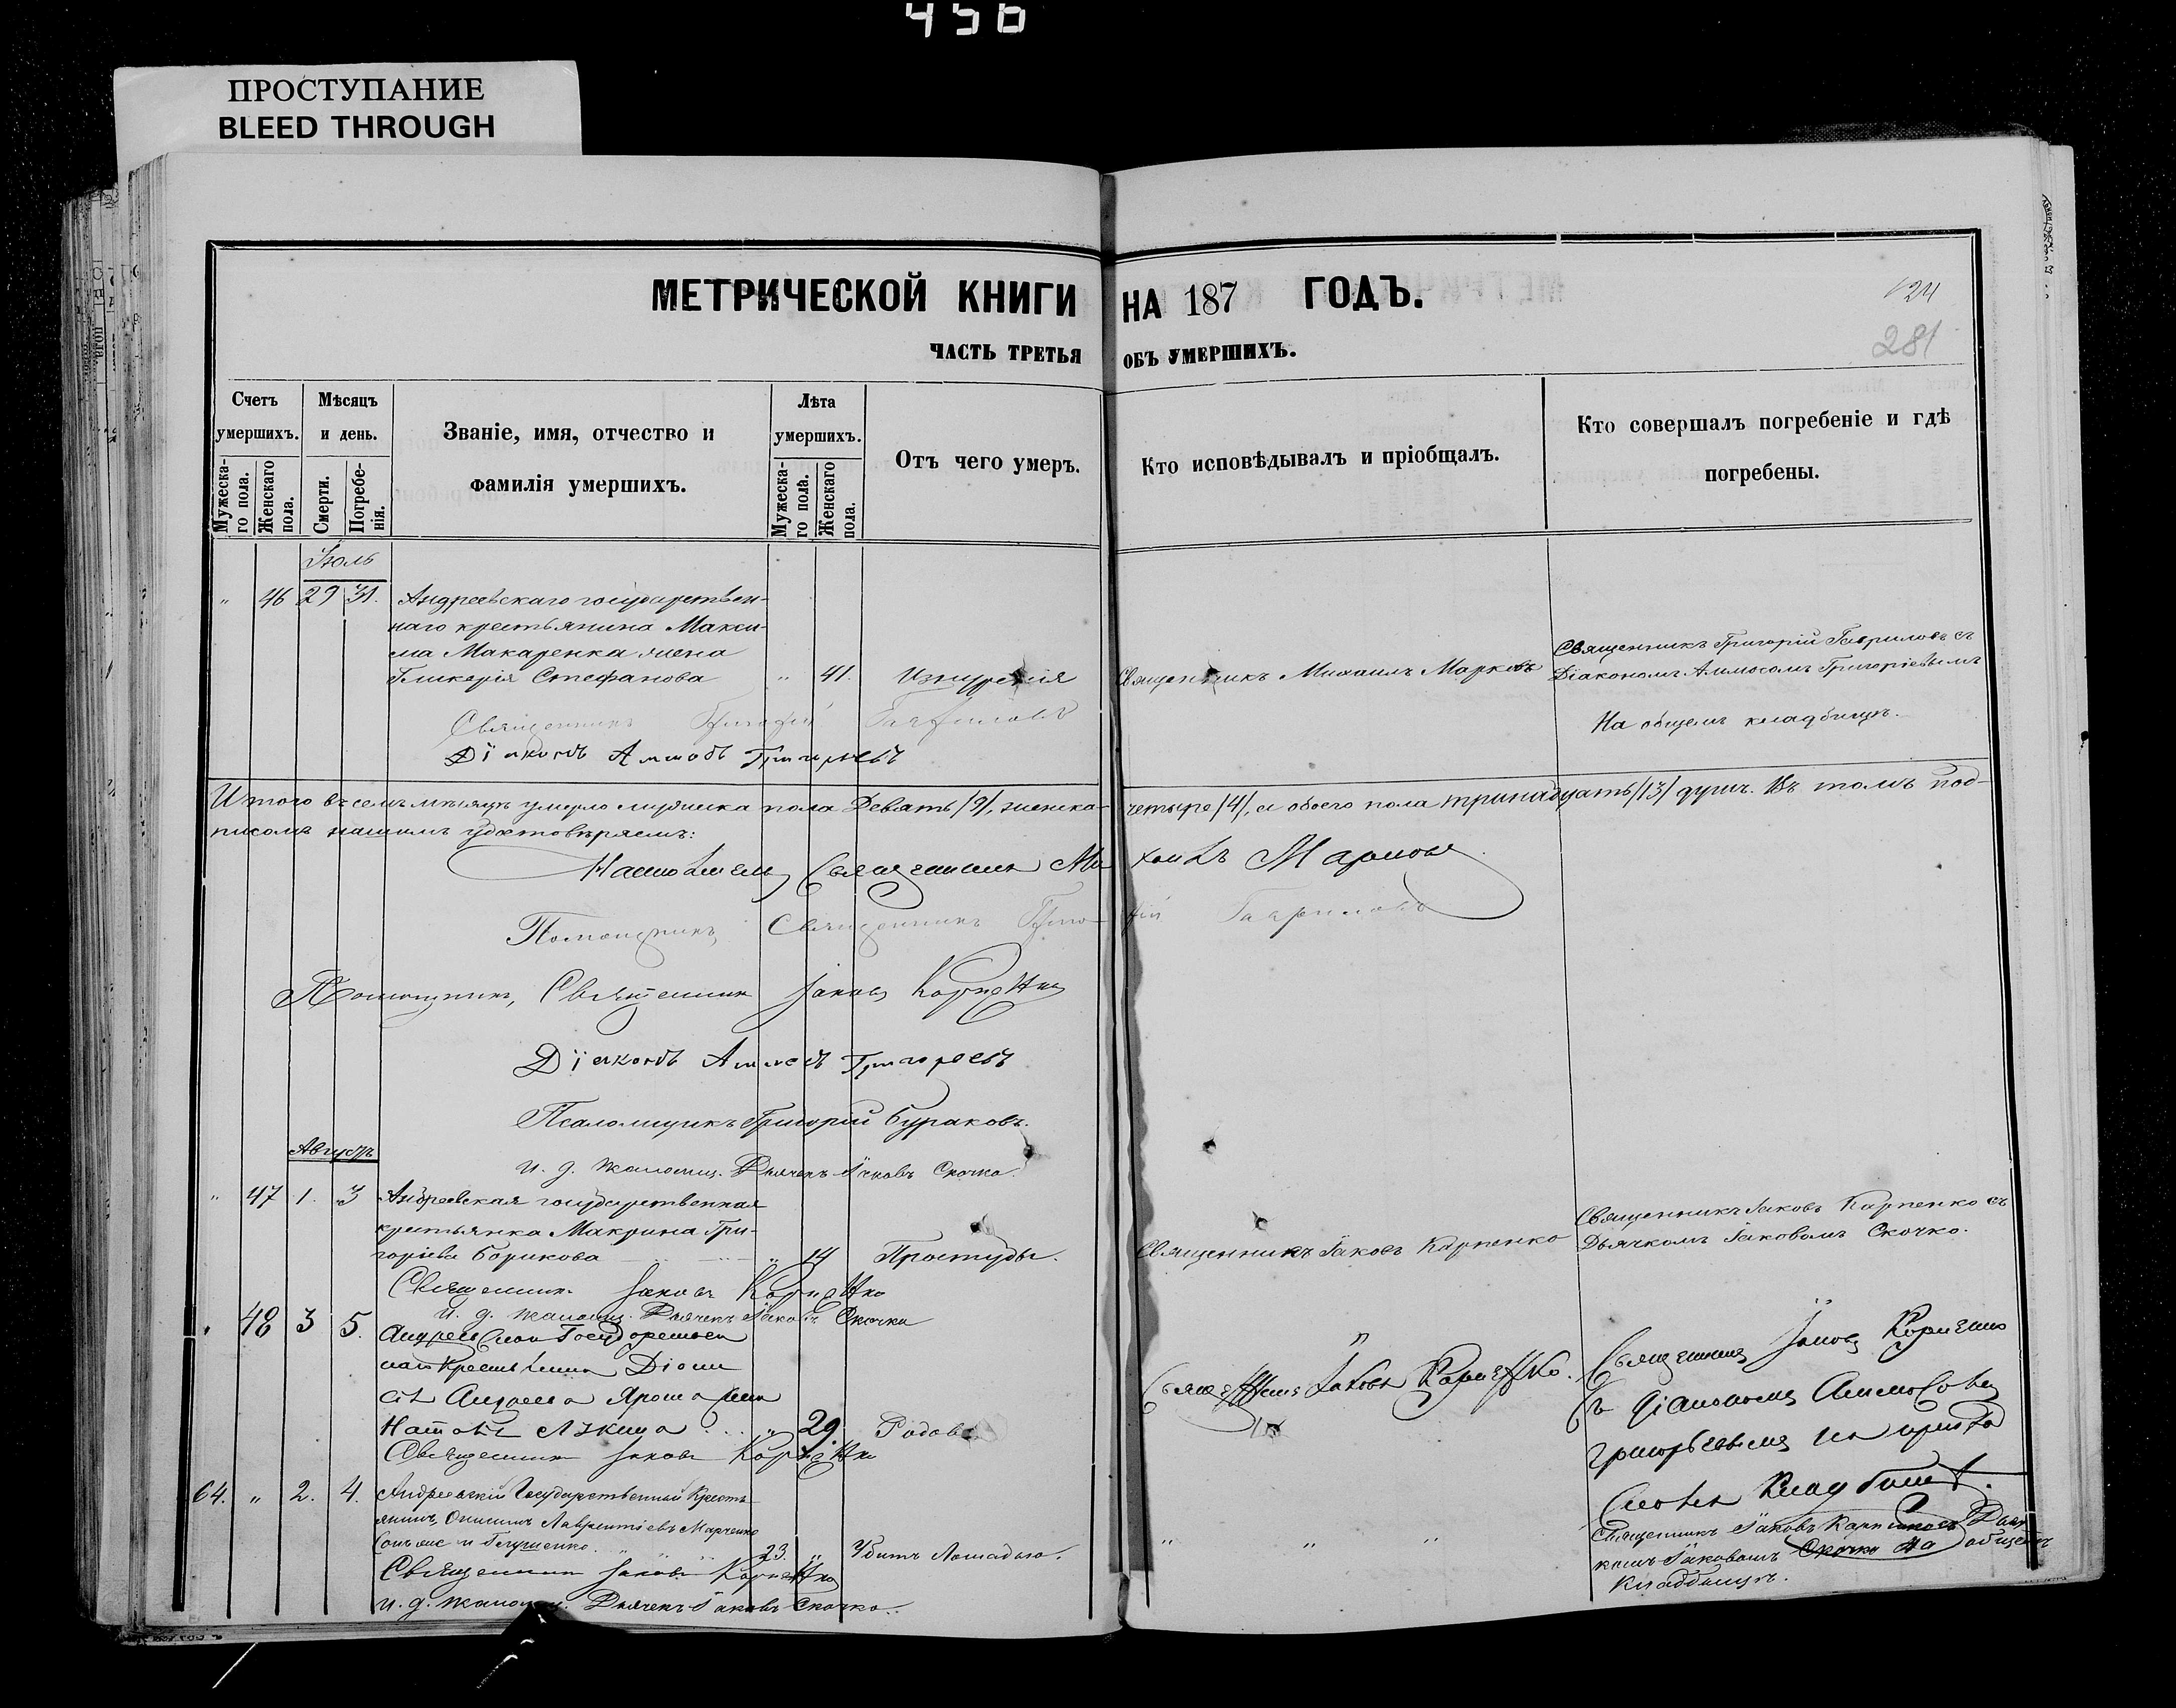 456
ПРОСТУПАНИЕ
BLEED THROUGH
МЕТРИЧЕСКОЙ КНИГИ НА 187 ГОДЪ.
124
281
ЧАСТЬ ТРЕТЬЯ ОБЪ УМЕРШИХЪ.
Счетъ умершихъ.
Мужеска-го пола.
Женскаго пола.
Мѣсяцъ и день.
Смерти.
Погребе-нія.
Званіе, имя, отчество и фамилія умершихъ.
Лѣта умершихъ.
Мужеска-го пола.
Женскаго пола.
Отъ чего умеръ.
Кто исповѣдывалъ и пріобщалъ.
Кто совершалъ погребеніе и гдѣ погребены.
Іюль
" 46 29 31. Андреевскаго государствен-
наго крестьянина Макси-
ма Макаренка жена
Гликерія Стефанова " 41. Изнуренія Священникъ Михаилъ Марковъ
Священникъ Григорій Гавриловъ съ
Діакономъ Аммосомъ Григорьевымъ
На общемъ кладбищѣ.
Священникъ Григорій Гавриловъ
Діаконъ Аммосъ Григорьевъ
Итого въ семъ мѣсяцѣ умерло мужеска пола Девять /9/, женска- четыре /4/, а обоего пола тринадцать /13/ душъ. Въ томъ под-
писомъ нашимъ удостовѣряемъ:
Настоятель Священникъ Михаилъ Марковъ
Помощникъ Священникъ Григорій Гавриловъ
Помощникъ, Священникъ Іаковъ Карпенко
Діаконъ Аммосъ Григорьевъ
Псаломщикъ Григорій Бураковъ.
И. д. псаломщ. Дьячекъ Іаковъ Скочко.
Августъ
" 47 1. 3 Андреевская государственная
крестьянка Макрина Гри-
горіева Борикова " 14 Простуды. Священникъ Іаковъ Карпенко
Священникъ Іаковъ Карпенко съ
Дьячкомъ Іаковомъ Скочко.
Священникъ Іаковъ Карпенко
И. д. псаломщ. Дьячекъ Іаковъ Скочко
" 48 3 5. Андреевскаго Государствен
наго Крестьянина Діони
сія Андреева жена
" 29. Родовъ Священникъ Іаковъ Карпенко.
Священникъ Іаковъ Карпенко
съ діакономъ Аммосомъ
Григорьевымъ на приход
скомъ кладбищѣ.
Священникъ Іаковъ Карпенко
64. " 2. 4. Андреевскій Государственный Кресть-
янинъ, Лаврентіевъ Марченко
23. " Убитъ Лошадью. " " "
Священникъ Іаковъ Карпенко съ Дьяч
комъ Іаковомъ Скочко на общемъ
кладбищѣ.
Священникъ Іаковъ Карпенко
И. д. псаломщ. Дьячекъ Іаковъ Скочко.